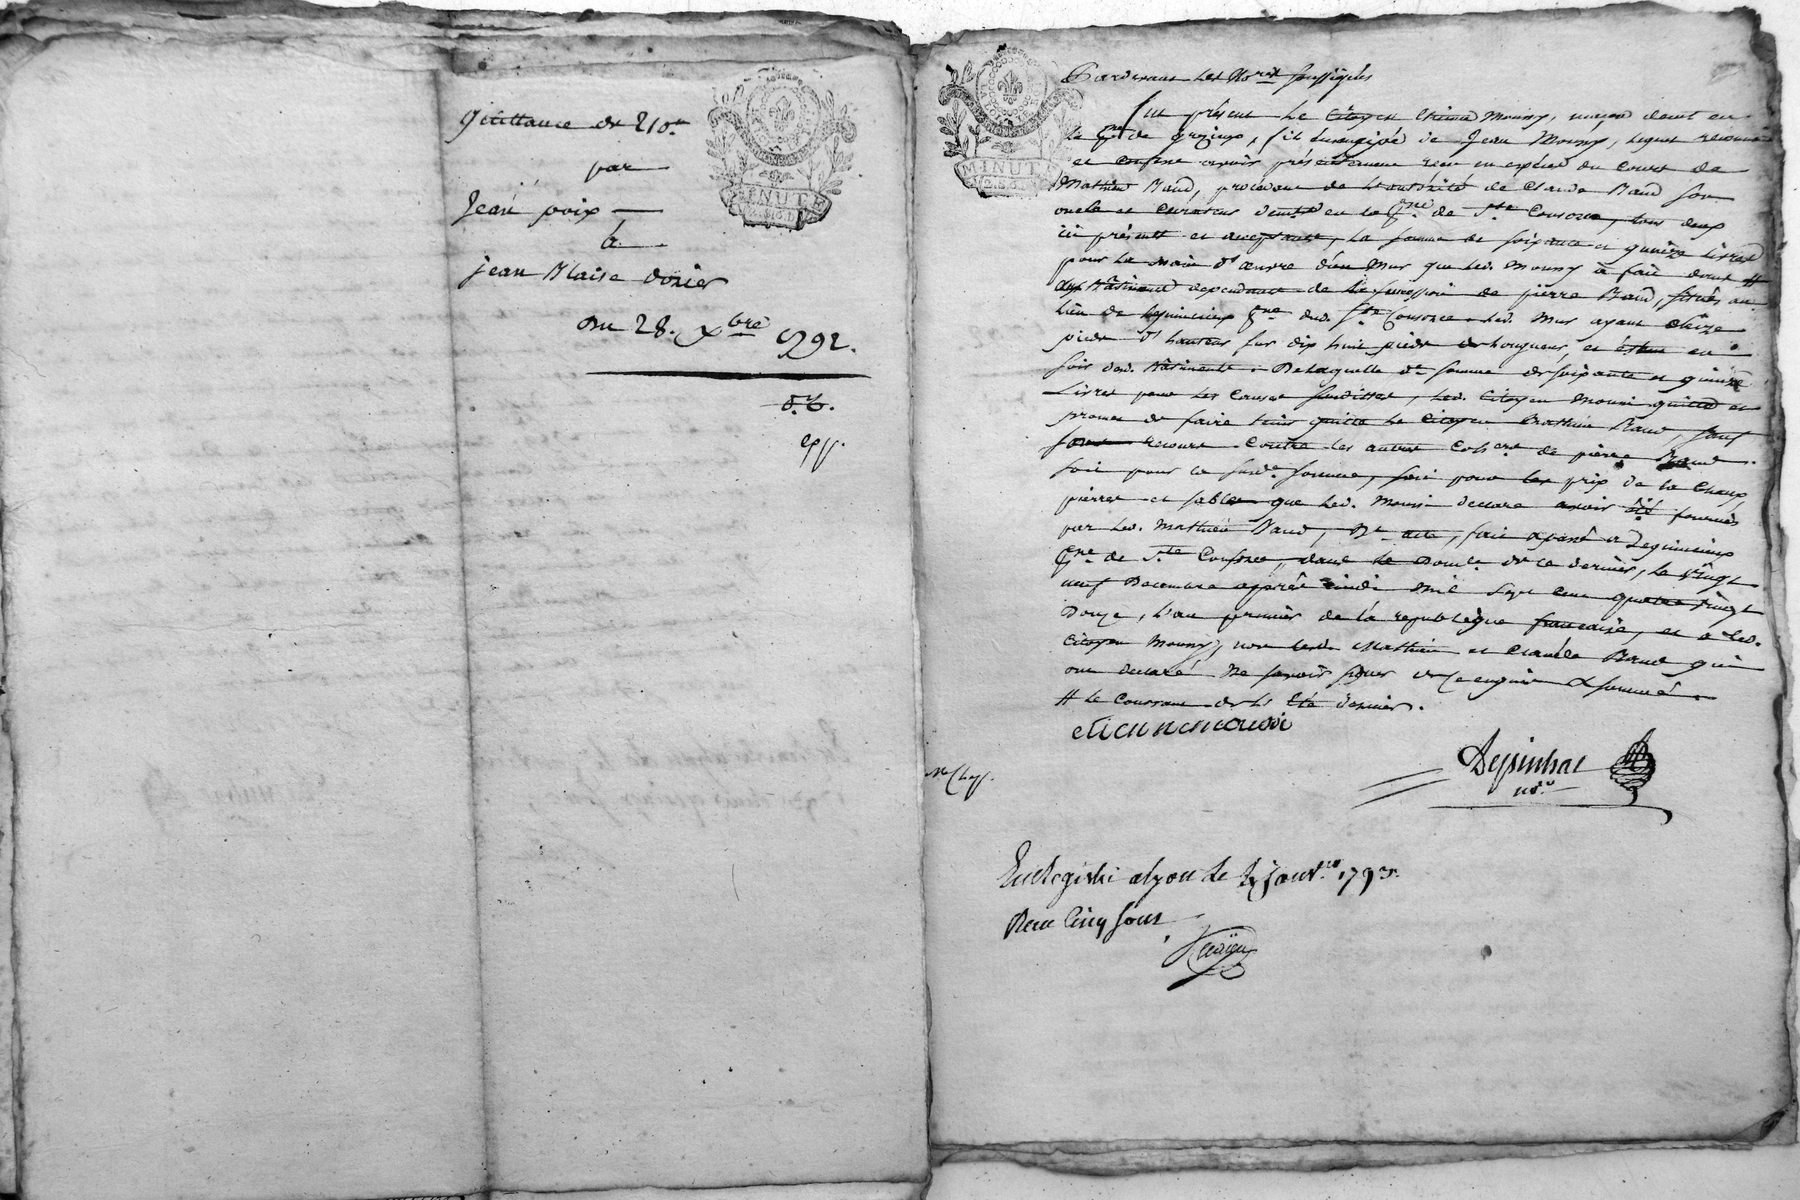 Quittance de 210tt
par
Jean poix
à
jean Blaise dozier
Du 28. Xbre 1792.
exp.
MINUTE
Pardevant les Nores soussignés
fut présent le Citoyen Etienne Moussy, maçon demt en
la pnse de grezieux, fils émancipé de Jean Moussy, lequel reconnoit
et confesse avoir présentement reçu en espèces du cours de
Mathieu Baud, procédant de l'autorité de Claude Baud son
oncle et Curateur demts en la pnse de Ste Consorce, tous deux
ici présents et acceptants, la somme de soixante et quinze livres
pour la main d'œuvre d'un Mur que led. Moussy a fait dont #
aux Bâtiments dependants de la succession de pierre Baud, situés au
lieu de pnse dud. Ste Consorce led. Mur ayant
pieds d'hauteur sur dix huit pieds de longueur, et étant en
soir desd. Bâtiments. De laquelle de somme de soixante et quinze
Livres pour les Causes susdittes, led. Citoyen Moussi quitte et
promet de faire tenir quitte le Citoyen Mathieu Baud, sauf
recours contre les autres Cohers de pierre Baud
soit pour ce susde somme, soit pour le prix de la Chaux,
pierres et sables que led. Moussi declare avoir été fournis
par led. Mathieu Baud, Dt acte, fait & passé a
pnse de Ste Consorce, dans le Domle de ce dernier, le vingt
neuf Decembre après midi Mil sept cent quatre vingt
Douze, l'an premier de la republique francaise, et a led.
Citoyen Moussy, non lesd. Mathieu et Claude Baud qui
ont declaré ne savoir signer de ce enquis & sommé.
# le Courrant de l'été dernier.
etienne moussi
Despinhac
nore
Enregistré a lyon le janvier 1793.
Recu Cinq sous